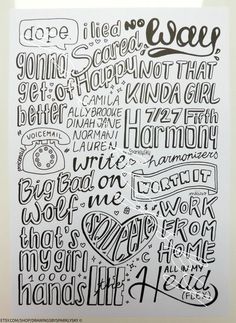 dope i lied NO WAY
gonna Scared Happy NOT THAT
get of KINDA GIRL
better
CAMILA
ALLY BROOKE
DINAH JANE
NORMANI
LAUREN
7/27 Fifth
Harmony
harmonizers
VOICEMAIL
write
on
me
Big Bad
Wolf
WORTH IT
SQUEEZE
WORK
FROM
HOME
that's
my girl
1000
hands
LIKE
ALL IN MY
Head
(FLEX)
ETSY.COM/SHOP/DRAWINGBYSPARKLYSKY ©